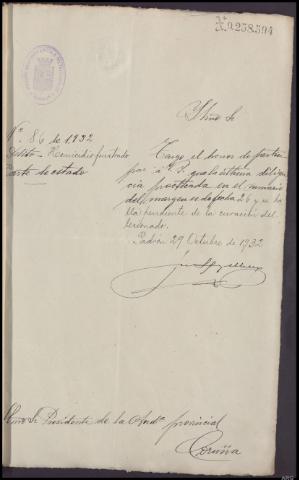 A.9.258.594
Ilmo Sr
Nº. 86 de 1932
Delito - Homicidio frustrado
Parte de estado
Tengo el honor de partici-
par a V. I. que la última diligen-
cia practicada en el sumario
del margen es de fecha 26 y se ha-
lla pendiente de la curación del
lesionado.
Padrón 29 Octubre de 1932
Ilmo Sr Presidente de la Audª provincial
Coruña